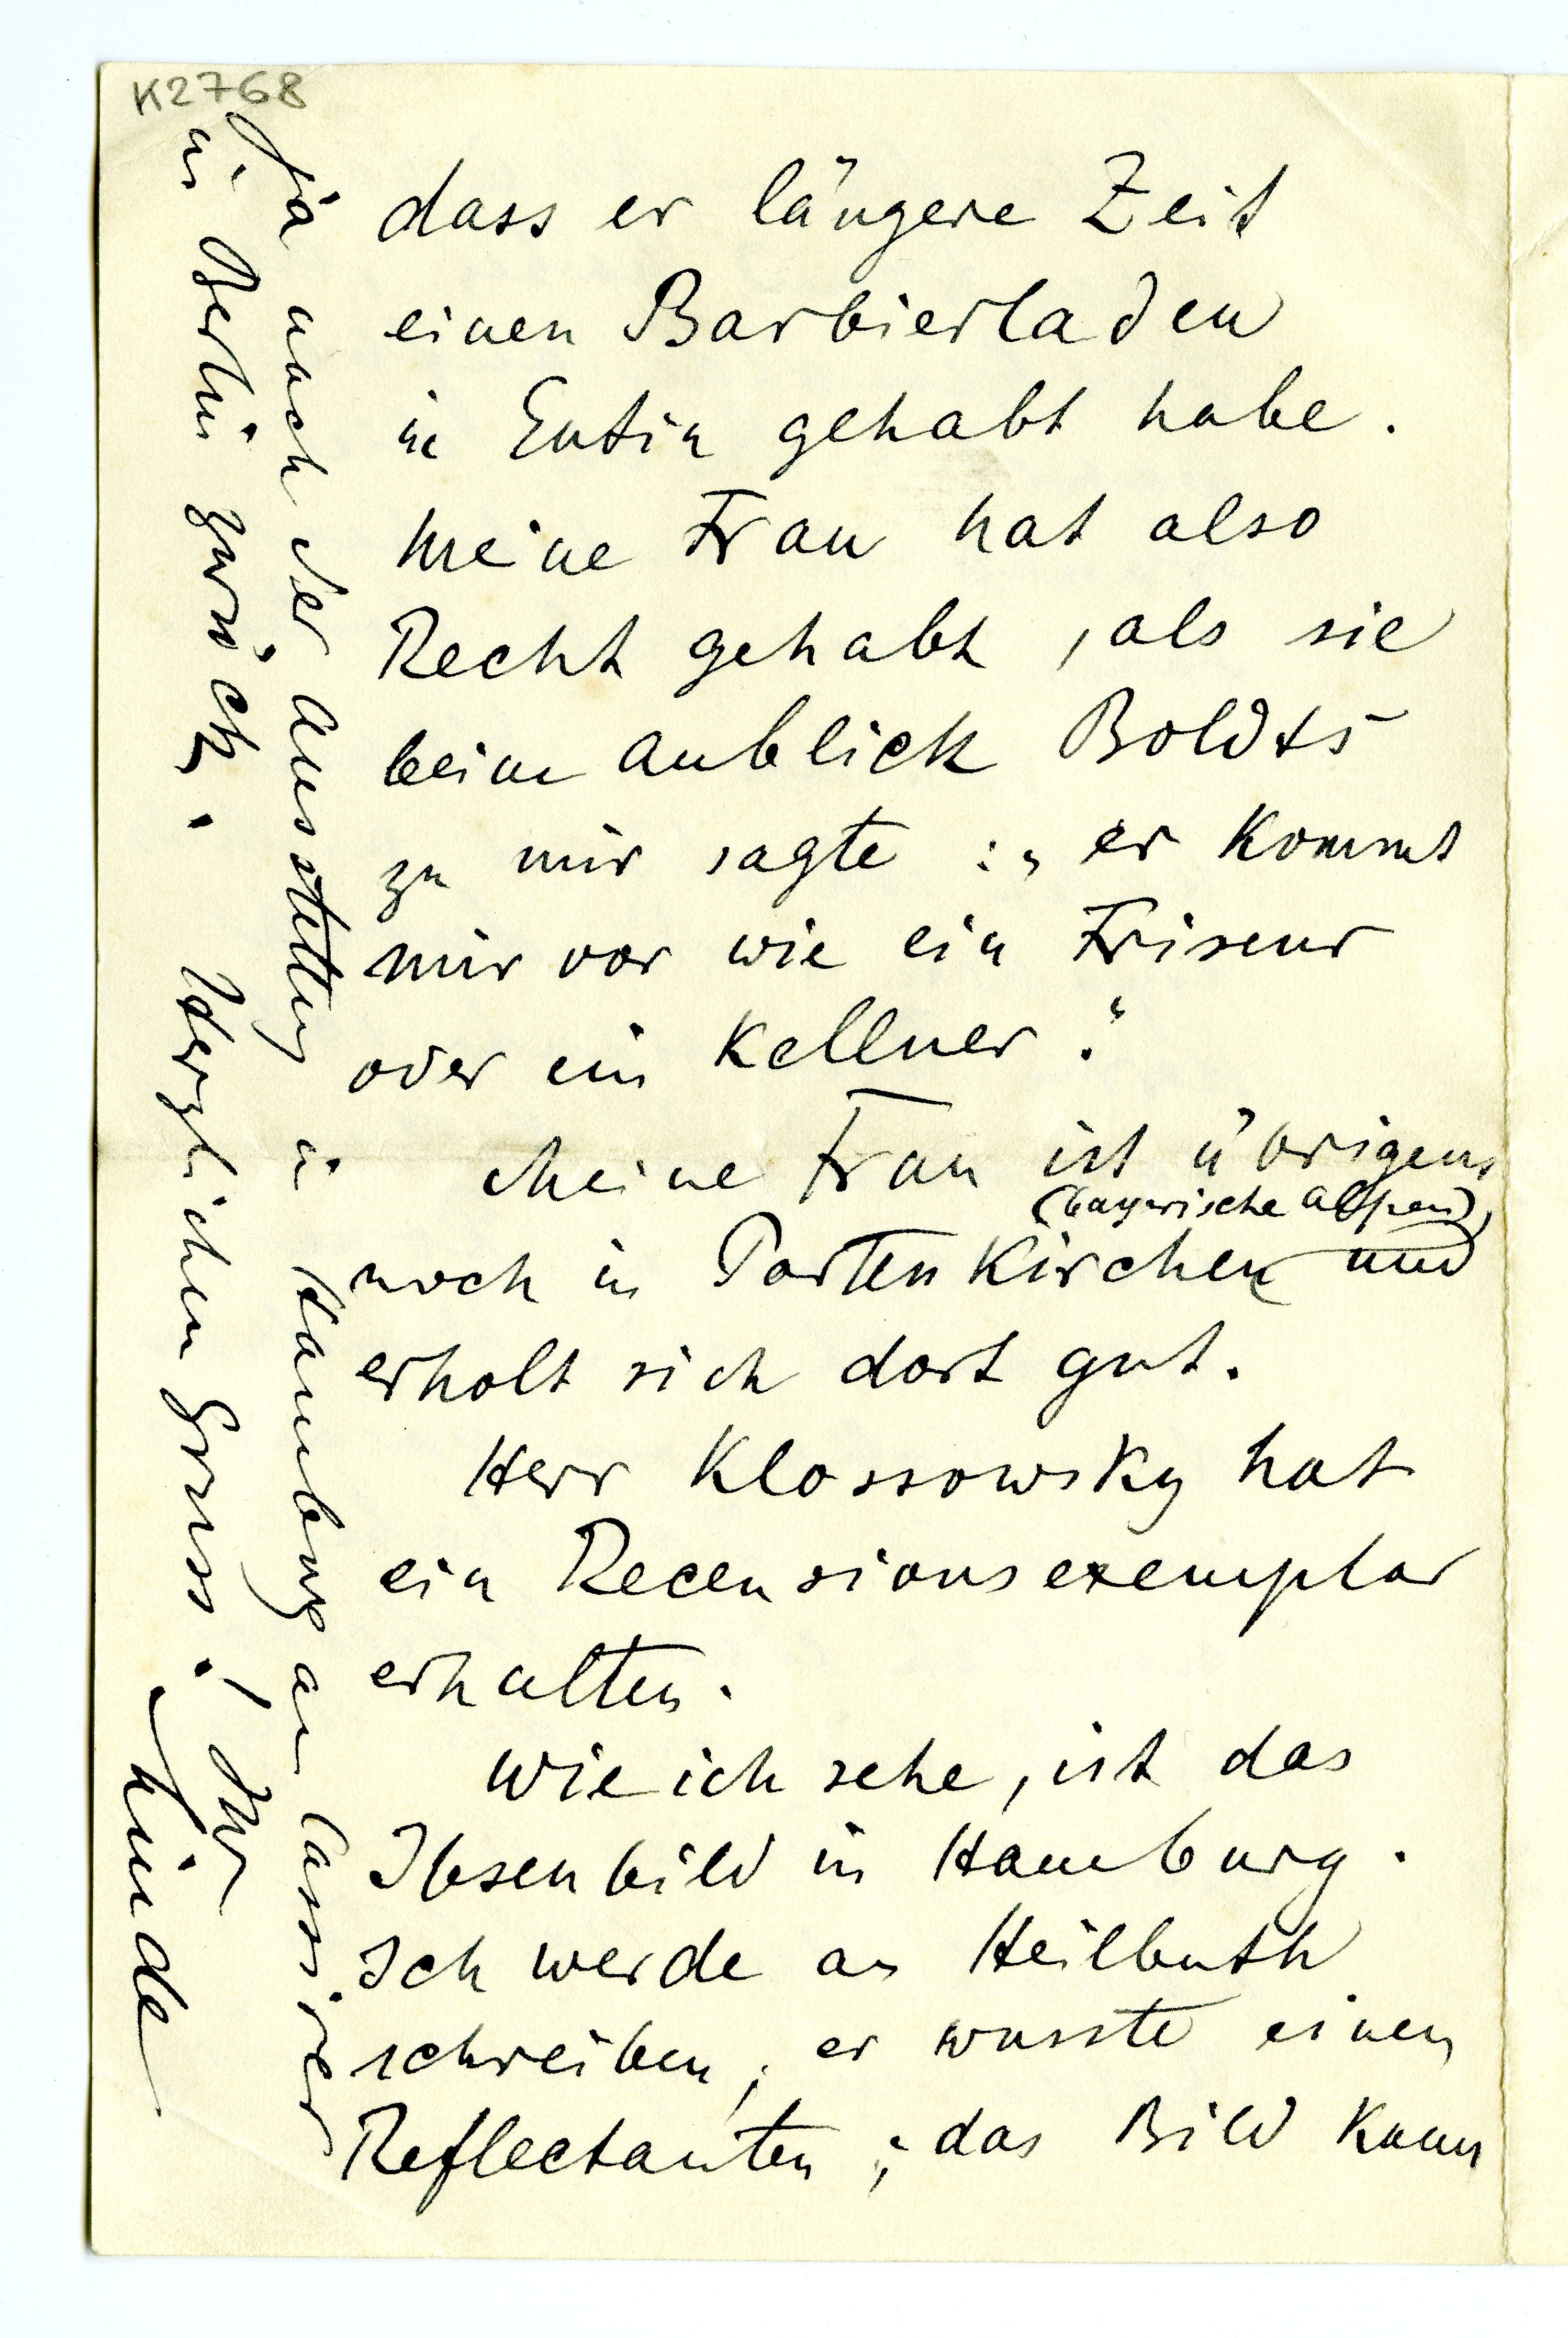 K2768
dass er längere Zeit
einen Barbierladen
in Eutin gehabt habe.
Meine Frau hat also
Recht gehabt, als sie
beim Anblick Boldts
zu mir sagte: „er kommt
mir vor wie ein Friseur
oder ein Kellner."
Meine Frau ist übrigens
noch in Partenkirchen (bayerische Alpen), und
erholt sich dort gut.
Herr Klossowsky hat
ein Recensionsexemplar
erhalten.
Wie ich sehe, ist das
Ibsenbild in Hamburg.
Ich werde an Heilbuth
schreiben, er wusste einen
Reflectanten; das Bild kann
ja nach der Ausstellung in Hamburg an Cassirer
in Berlin zurück. Herzlichen Gruss! Ihr
Linde